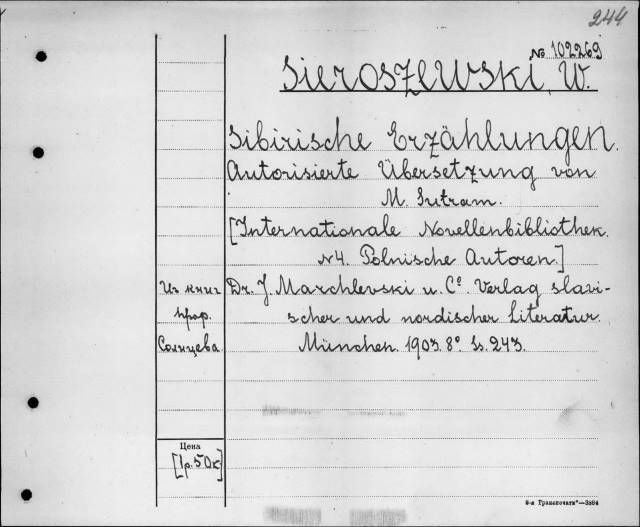 244
№ 102269
Sieroszewski, W.
Sibirische Erzählungen.
Autorisierte Übersetzung von
M. Sutram.
[Internationale Novellenbibliothek.
N4. Polnische Autoren.]
Из книг
Dr. J. Marchlevski u. Cº. Verlag slavi-
проф.
scher und nordischer Literatur.
Солнцева
München. 1903. 8º. Ss. 243.
Цена
[1р. 50к]